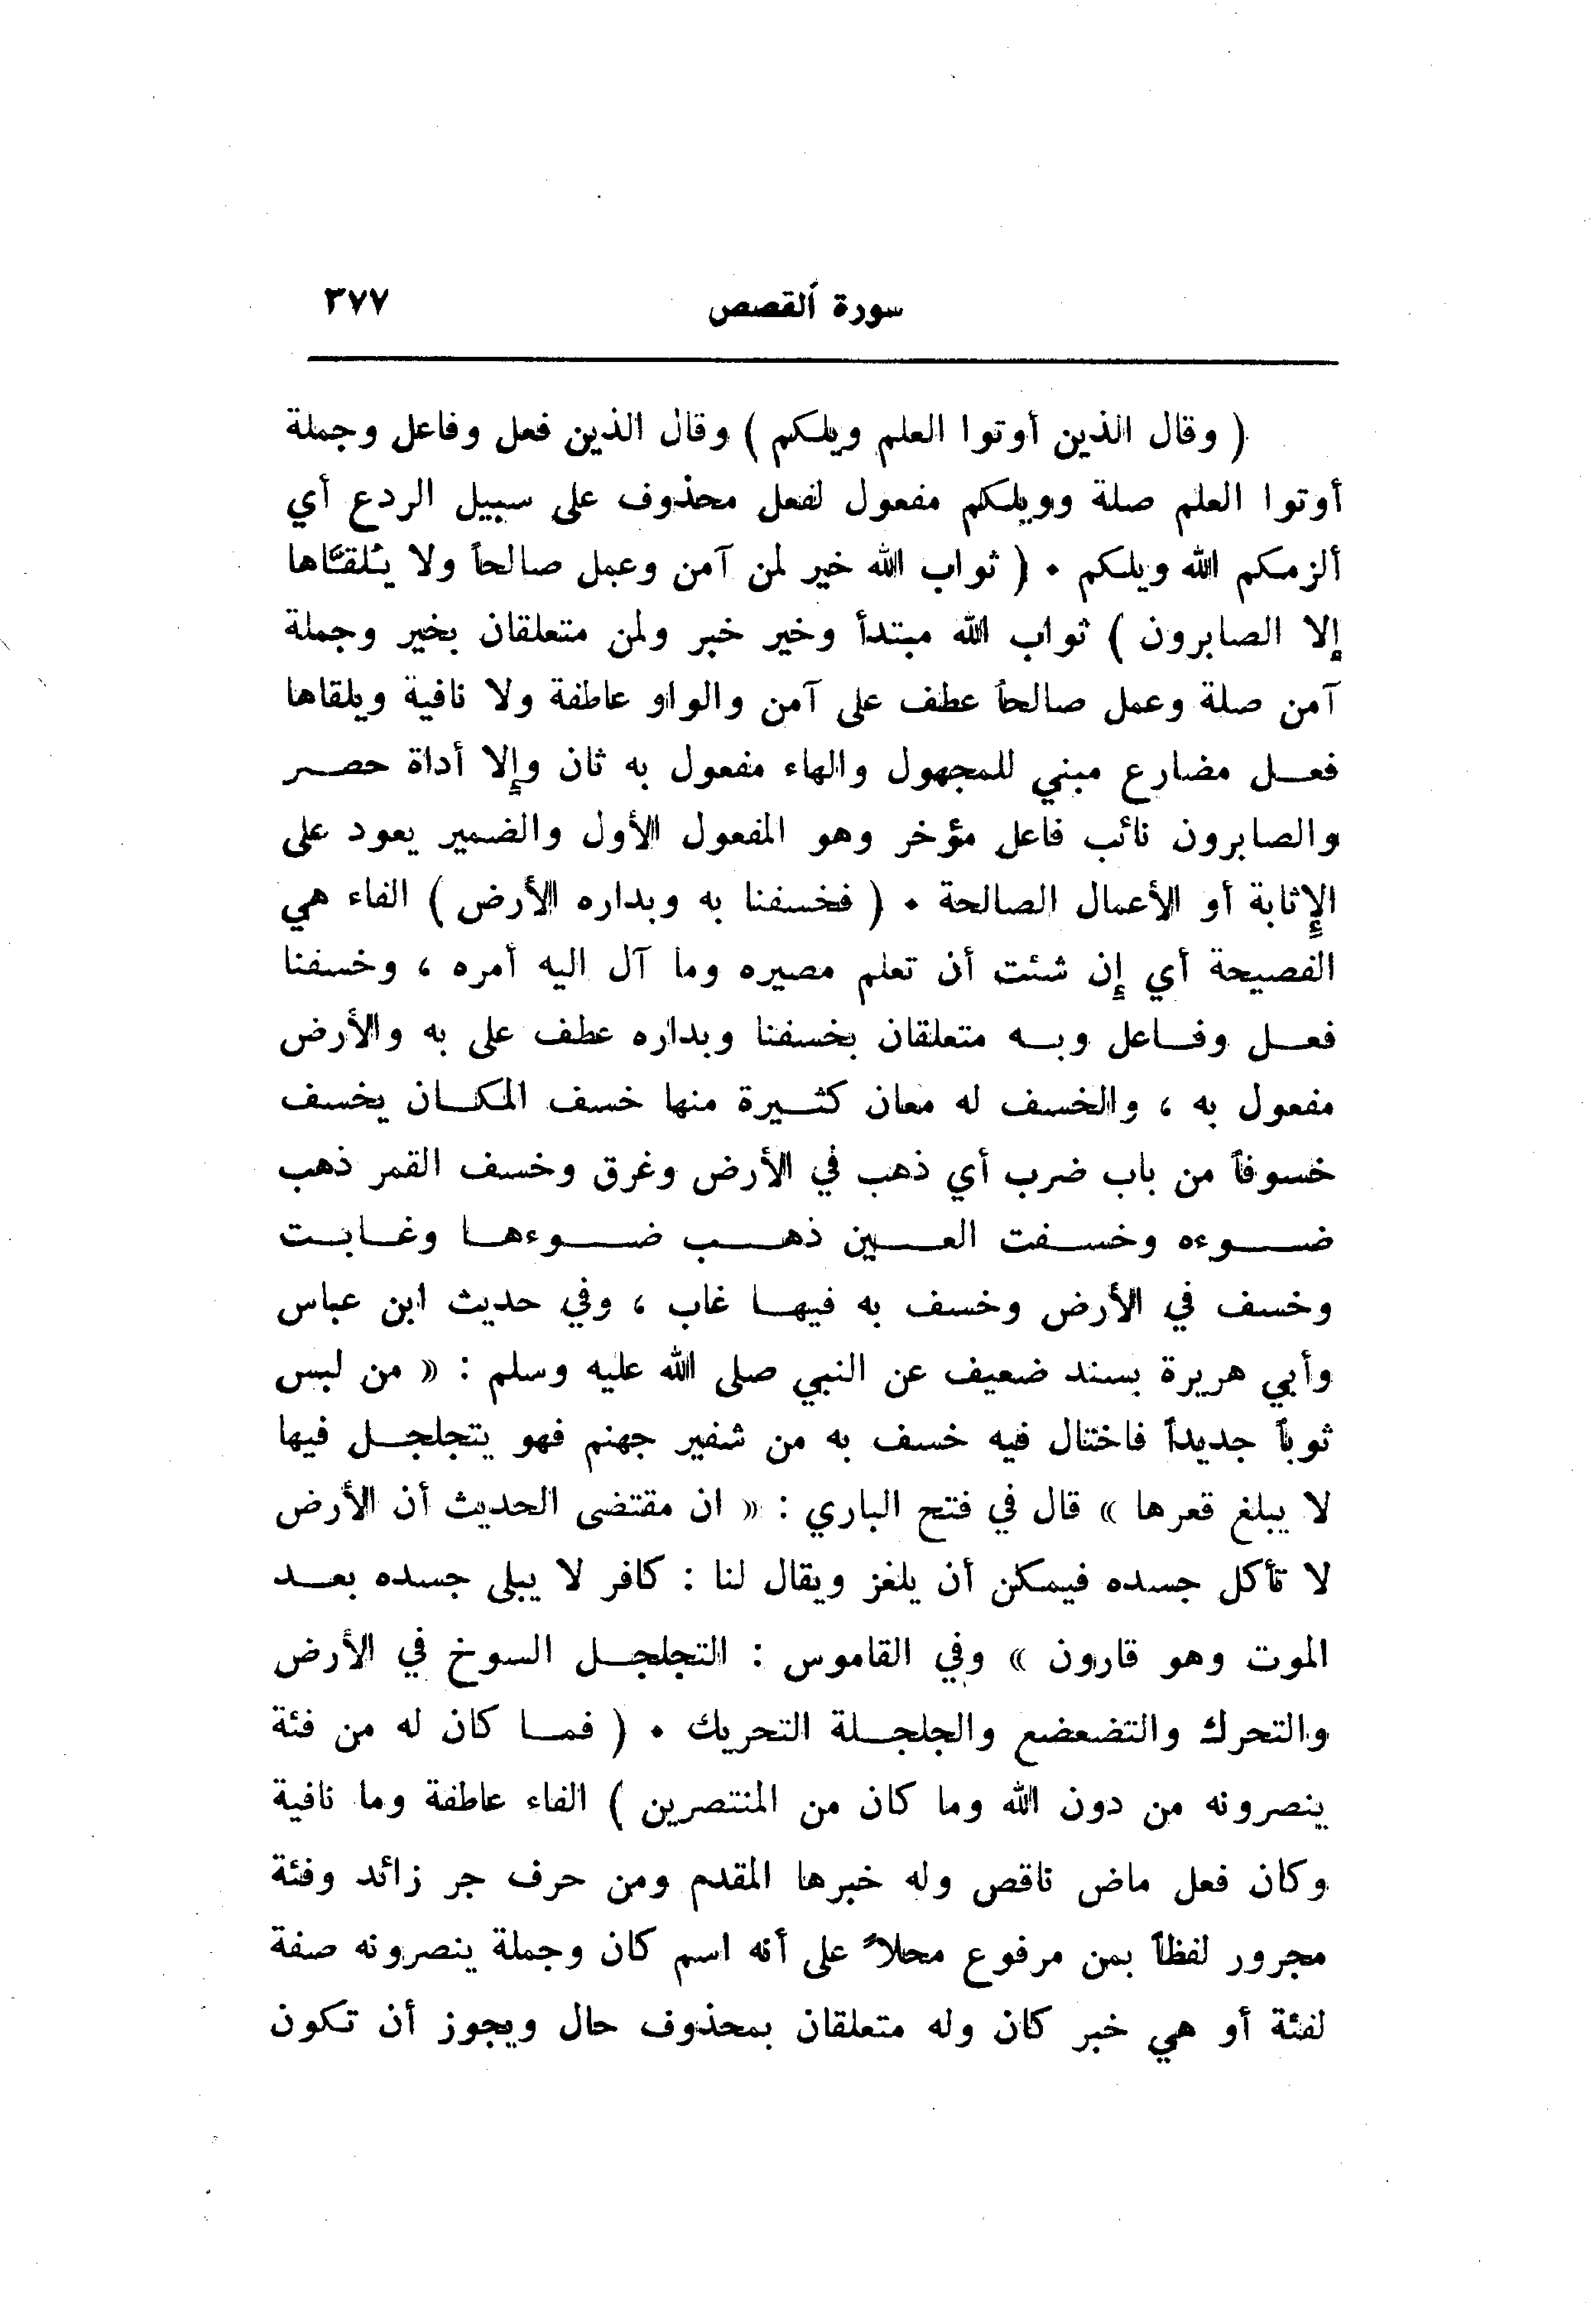 سورة القصص ٣٧٧
( وقال الذين أوتوا العلم ويلكم ) وقال الذين فعل وفاعل وجملة
أوتوا العلم صلة وويلكم مفعول لفعل محذوف على سبيل الردع أي
ألزمكم الله ويلكم ٠ ( ثواب الله خير لمن آمن وعمل صالحاً ولا يُلقَّاها
إلا الصابرون ) ثواب الله مبتدأ وخير خبر ولمن متعلقان بخير وجملة
آمن صلة وعمل صالحاً عطف على آمن والواو عاطفة ولا نافية ويلقاها
فعل مضارع مبني للمجهول والهاء مفعول به ثان وإلا أداة حصر
والصابرون نائب فاعل مؤخر وهو المفعول الأول والضمير يعود على
الإثابة أو الأعمال الصالحة ٠ ( فخسفنا به وبداره الأرض ) الفاء هي
الفصيحة أي إن شئت أن تعلم مصيره وما آل اليه أمره ، وخسفنا
فعل وفاعل وبه متعلقان بخسفنا وبداره عطف على به والأرض
مفعول به ، والخسف له معان كثيرة منها خسف المكان يخسف
خسوفاً من باب ضرب أي ذهب في الأرض وغرق وخسف القمر ذهب
ضوءه وخسفت العين ذهب ضوءها وغابت
وخسف في الأرض وخسف به فيها غاب ، وفي حديث ابن عباس
وأبي هريرة بسند ضعيف عن النبي صلى الله عليه وسلم : « من لبس
ثوباً جديداً فاختال فيه خسف به من شفير جهنم فهو يتجلجل فيها
لا يبلغ قعرها » قال في فتح الباري : « ان مقتضى الحديث أن الأرض
لا تأكل جسده فيمكن أن يلغز ويقال لنا : كافر لا يبلى جسده بعد
الموت وهو قارون » وفي القاموس : التجلجل السوخ في الأرض
والتحرك والتضعضع والجلجلة التحريك ٠ ( فما كان له من فئة
ينصرونه من دون الله وما كان من المنتصرين ) الفاء عاطفة وما نافية
وكان فعل ماض ناقص وله خبرها المقدم ومن حرف جر زائد وفئة
مجرور لفظاً بمن مرفوع محلاً على أنه اسم كان وجملة ينصرونه صفة
لفئة أو هي خبر كان وله متعلقان بمحذوف حال ويجوز أن تكون